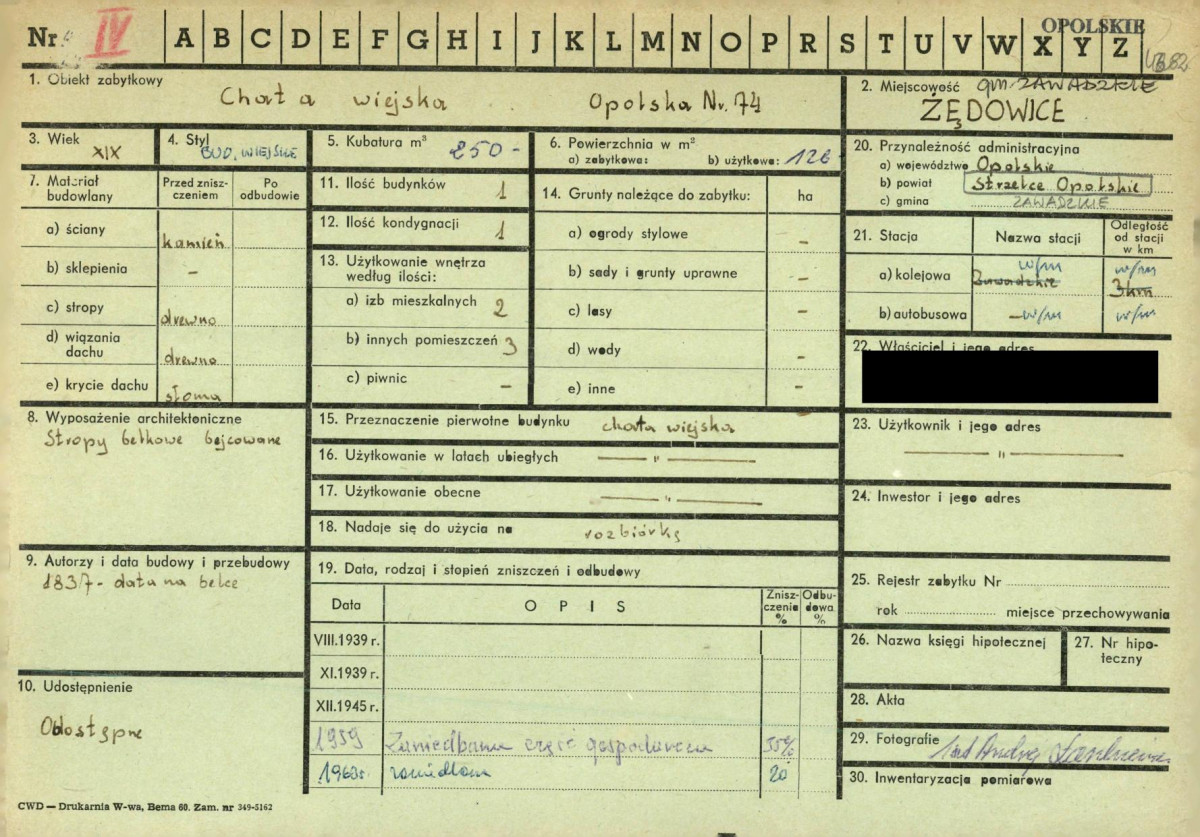 Nr IV A B C D E F G H I J K L M N O P R S T U V W X Y Z OPOLSKIE
1. Obiekt zabytkowy
Chata wiejska Opolska Nr. 74
2. Miejscowość gm. ZAWADZKIE
ŻĘDOWICE
3. Wiek
XIX
4. Styl
BUD. WIEJSKIE
5. Kubatura m³ 250 -
6. Powierzchnia w m²
a) zabytkowa: b) użytkowa: 126 -
7. Materiał budowlany
Przed zniszczeniem
Po odbudowie
a) ściany kamień
b) sklepienia –
c) stropy drewno
d) wiązania dachu drewno
e) krycie dachu słoma
11. Ilość budynków 1
12. Ilość kondygnacji 1
13. Użytkowanie wnętrza
według ilości:
a) izb mieszkalnych 2
b) innych pomieszczeń 3
c) piwnic –
14. Grunty należące do zabytku: ha
a) ogrody stylowe –
b) sady i grunty uprawne –
c) lasy –
d) wody –
e) inne –
20. Przynależność administracyjna
a) województwo Opolskie
b) powiat Strzelce Opolskie
c) gmina ZAWADZKIE
21. Stacja
Nazwa stacji
Odległość
od stacji
w km
a) kolejowa w/m Zawadzkie w/m 3 km
b) autobusowa – w/m w/m
22. Właściciel i jego adres
8. Wyposażenie architektoniczne
Stropy belkowe bejcowane
15. Przeznaczenie pierwotne budynku chata wiejska
16. Użytkowanie w latach ubiegłych — " —
17. Użytkowanie obecne — " —
18. Nadaje się do użycia na rozbiórkę
23. Użytkownik i jego adres
— " —
24. Inwestor i jego adres
9. Autorzy i data budowy i przebudowy
1837 - data na belce
19. Data, rodzaj i stopień zniszczeń i odbudowy
Data O P I S Zniszczenia % Odbudowa %
VIII.1939 r.
XI.1939 r.
XII.1945 r.
1959 Zaniedbana część gospodarcza 35%
1963r. 20
25. Rejestr zabytku Nr
rok miejsce przechowywania
26. Nazwa księgi hipotecznej
27. Nr hipoteczny
10. Udostępnienie
28. Akta
29. Fotografie
30. Inwentaryzacja pomiarowa
CWD — Drukarnia W-wa, Bema 60. Zam. nr 349-5162